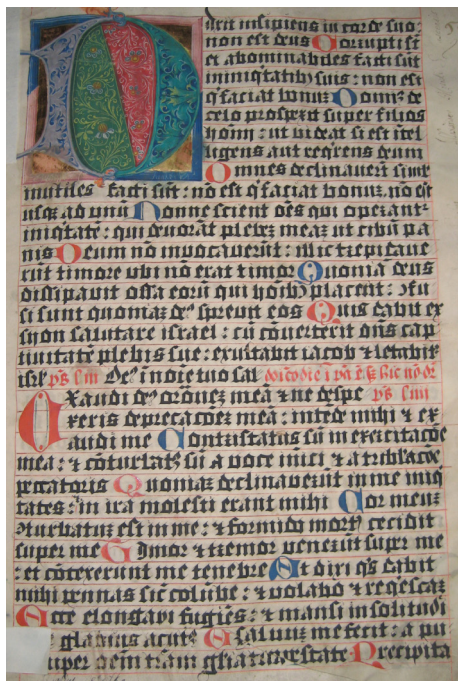 Dixit insipiens in corde suo
non est deus Corrupti sūt
et abominabiles facti sūt
iniqtatibꝫ suis : non est
q faciat bonuꝫ Dominꝰ de
celo prospexit super filios
hoīm : ut videat si est ītel
ligens aut reqrens deum
Omnes declinaverūt simul
inutiles facti sūt : nō est q faciat bonuꝫ nō est
usqꝫ ad unū Nonne scient oēs qui operant
iniqtatē : qui devorāt plebeꝫ meaꝫ ut cibū pa
nis Deum nō invocaverūt : illic trepidave
rūt timore ubi nō erat timor Quoniā deus
dissipavit ossa eorū qui hoībꝫ placent : ꝯfu
si sunt quoniaꝫ deꝰ sprevit eos Quis dabit ex
syon salutare israel : cū cōverterit dn̄s cap
tivitatē plebis sue : exultabit iacob ⁊ letabit
isrl pꝰs liii Deꝰ ī noīe tuo sal
Exaudi deꝰ orōneꝫ meā ⁊ ne despe pꝰs liiii
xeris deprecacōeꝫ meā : intēde mihi ⁊ ex
audi me Contristatus sū in exercitacōe
mea : ⁊ cōturbatꝰ sū a voce inīci ⁊ a tribulacōe
peccatoris Quoniaꝫ declinaverūt in me iniq
tates : in ira molesti erant mihi Cor meuꝫ
ꝯturbatuꝫ est in me : ⁊ formido mortꝭ cecidit
super me Timor ⁊ tremor venerūt super me
: et cōtexerunt me tenebre Et dixi qs dabit
mihi pennas sic colūbe : ⁊ volabo ⁊ reqescaꝫ
Ecce elongavi fugiēs : ⁊ mansi in solitudi
gladius acutꝰ salvuꝫ me fecit : a pu
uper oēm trām Precipita